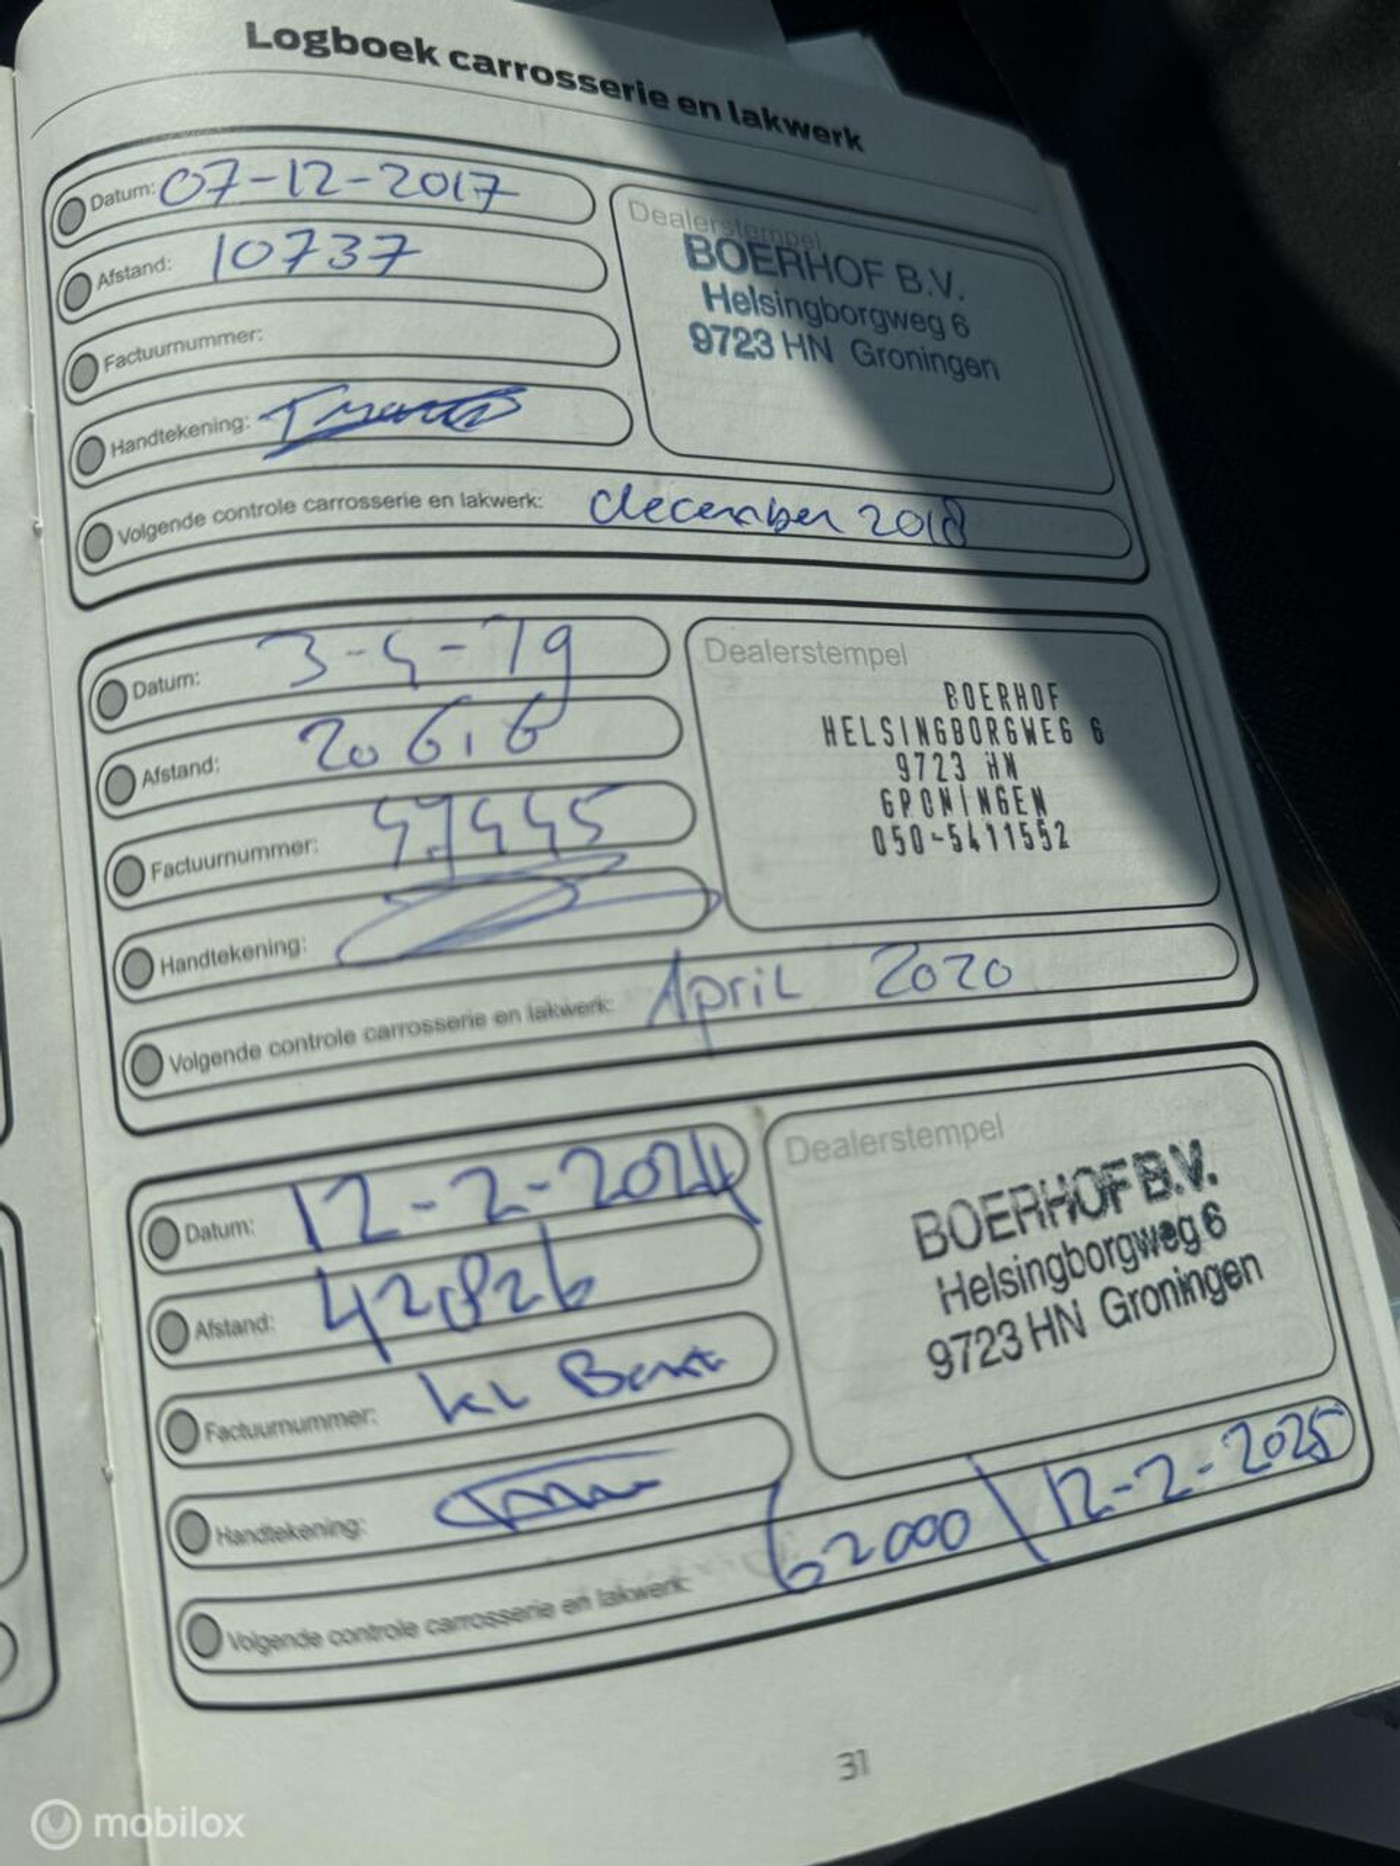 Logboek carrosserie en lakwerk
Datum: 07-12-2017
Afstand: 10737
Factuurnummer:
Handtekening:
Volgende controle carrosserie en lakwerk: december 2018
Dealerstempel
BOERHOF B.V.
Helsingborgweg 6
9723 HN Groningen
Datum: 3-4-19
Afstand: 20616
Factuurnummer:
Handtekening:
Volgende controle carrosserie en lakwerk: April 2020
Dealerstempel
BOERHOF
HELSINGBORGWEG 6
9723 HN
GRONINGEN
050-5411552
Datum: 12-2-2024
Afstand: 42826
Factuurnummer: kl Beurt
Handtekening:
Volgende controle carrosserie en lakwerk: 62000 \ 12-2-2025
Dealerstempel
BOERHOF B.V.
Helsingborgweg 6
9723 HN Groningen
31
mobilox